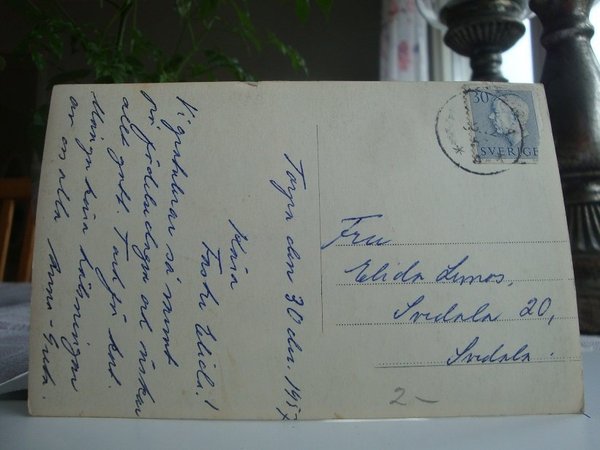 den 30 dec. 1957
Kära
Faster Elida!
Vi gratulerar så mycket
på födelsedagen och önskar
allt gott. Tack för kort.
Många kära hälsningar
av oss alla Anna-Greta.
30
SVERIGE
Fru
Elida
Svedala 20,
Svedala.
2-